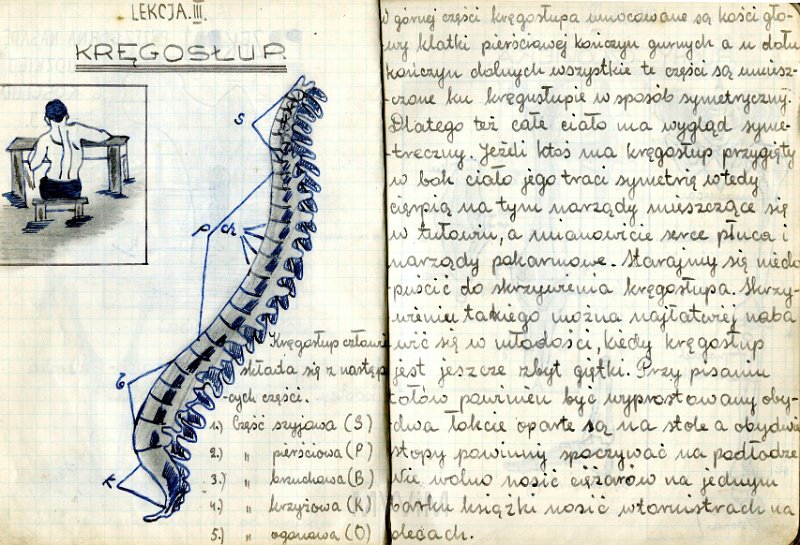 LEKCJA.III.
KRĘGOSŁUP.
S
P
ch
B
K
Kręgosłup człowie
składa się z następ
cych części.
1.) Część szyjowa (S)
2.) " pierśiowa (P)
3.) " brzuchowa (B)
4.) " krzyżowa (K)
5.) " ogonowa (O)
W górnej części kręgosłupa umocowane są kości gło-
wy klatki pierściowej kończyn gurnych a u dołu
kończyn dolnych wszystkie te części są umiesz-
czone ku kręgusłupie w sposób symetryczny.
Dlatego też całe ciało ma wygląd syme-
treczny. Jeżeli ktoś ma kręgosłup przygięty
w bok ciało jego traci symetrię wtedy
cierpią na tym narządy mieszczące się
w tułowiu, a mianowicie serce płuca i
narządy pokarmowe. Starajmy się niedo
puścić do skrzywienia kręgosłupa. Skrzy-
wieniu takiego można najłatwiej naba
wić się w młodości, kiedy kręgosłup
jest jeszcze zbyt giętki. Przy pisaniu
tółów powinien być wyprostowany oby-
dwa łokcie oparte są na stole a obydwie
stopy powinny spoczywać na podłodze
Nie wolno nosić ciężarów na jednym
barku książki nosić w tornistrach na
plecach.